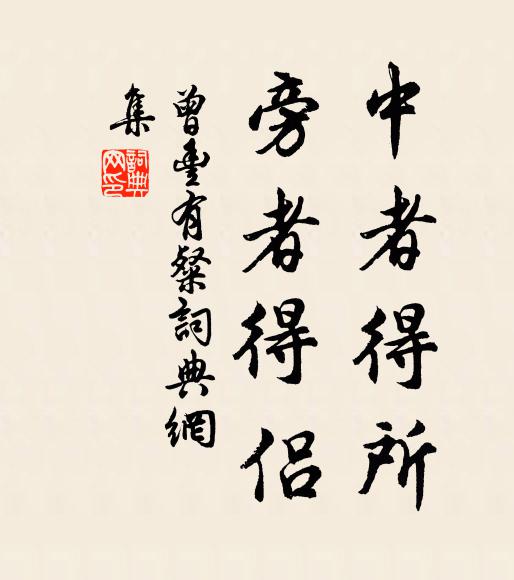 中者得所
旁者得侶
曾豐有粲詞典網
集
詞典
网印